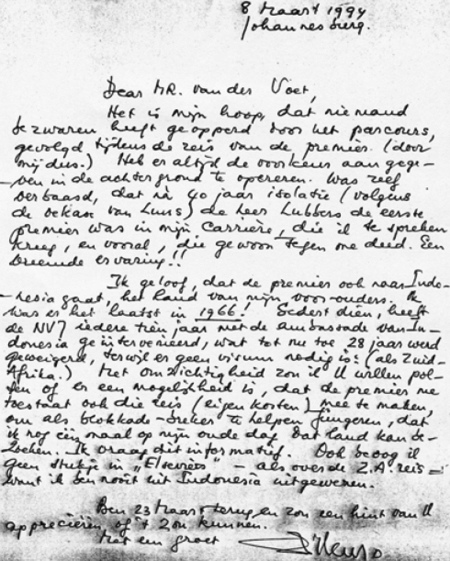 8 Maart 1994
Johannesburg.
Dear MR. van der Voet,
Het is mijn hoop, dat niemand
bezwaren heeft geopperd voor het parcours,
gevolgd tijdens de reis van de premier. (door
mij dus.) Heb er altijd de voorkeur aan gege-
ven in de achtergrond te opereren. Was zelf
verbaasd, dat na 40 jaar isolatie (volgens
de oekase van Luns) de heer Lubbers de eerste
premier was in mijn carrière, die ik te spreken
kreeg, en vooral, die gewoon tegen me deed. Een
vreemde ervaring!!
Ik geloof, dat de premier ook naar Indo-
nesia gaat, het land van mijn voorouders. Ik
was er het laatst in 1966! Sedert dien, heeft
de NVJ iedere tien jaar met de ambassade van In-
donesia geïntervenieerd, wat tot nu toe 28 jaar werd
geweigerd, terwijl er geen visum nodig is! (als Zuid-
Afrika.) Met omzichtigheid zou ik U willen pol-
sen of er een mogelijkheid is, dat de premier me
toestaat ook die reis (eigen kosten) mee te maken,
om als blokkade-breker te helpen fungeren, dat
ik nog één maal op mijn oude dag dat land kan be-
zoeken. Ik vraag dit informatief. Ook beoog ik
geen stukje in „Elseviers" – als over de Z.A. reis –
want ik ben nooit uit Indonesia uitgewezen.
Ben 23 Maart terug en zou een hint van U
appreciëren of 't zou kunnen.
Met een groet